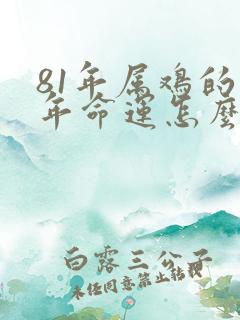 81年属鸡的
年命运怎么
白露三公子
未经同意禁止转载